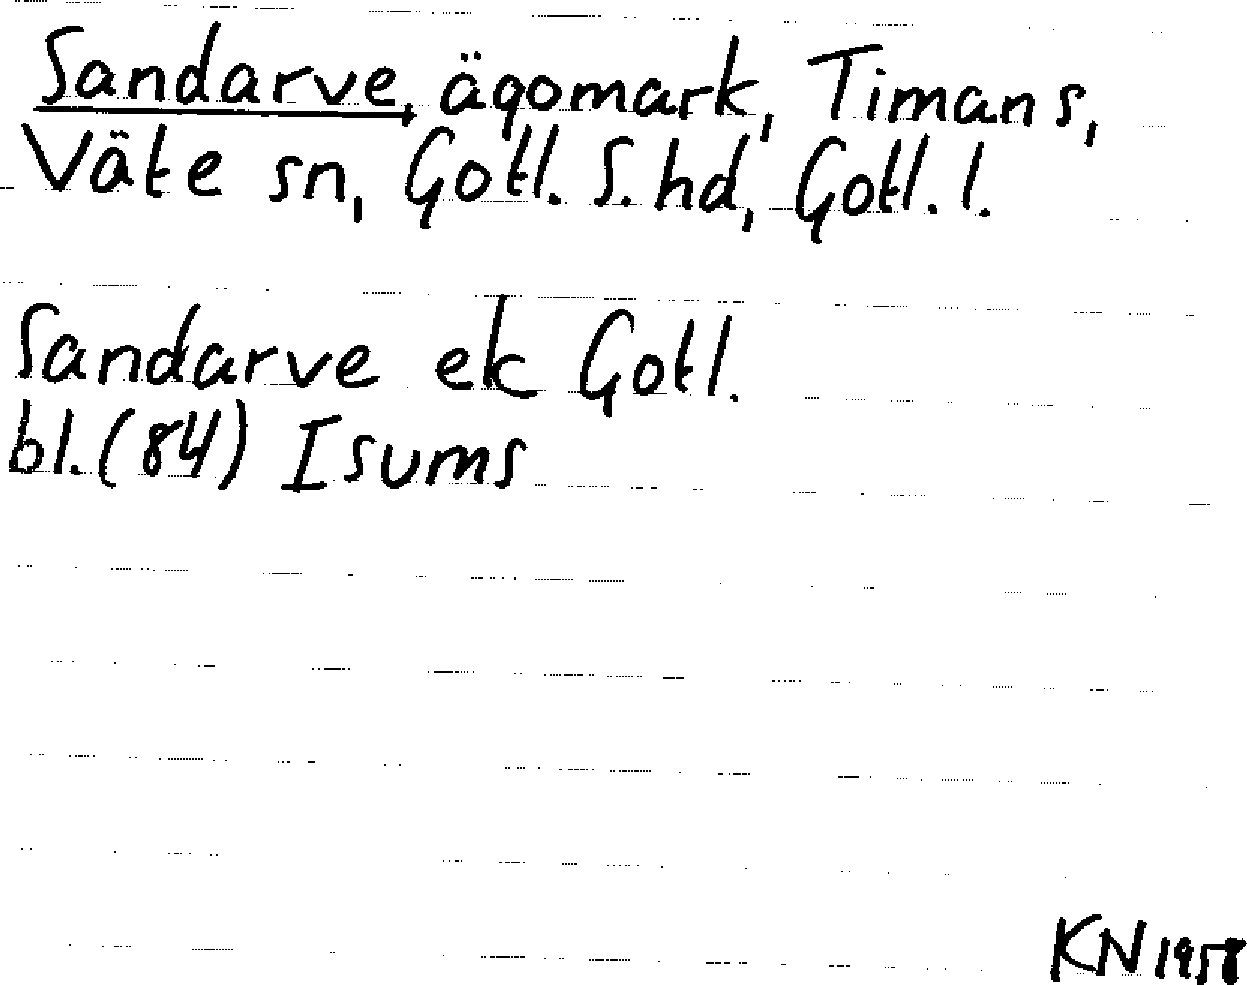 Sandarve, ägomark, Timans,
Väte sn, Gotl. S. hd, Gotl. l.
Sandarve ek Gotl.
bl. (84) Isums
KN 1958